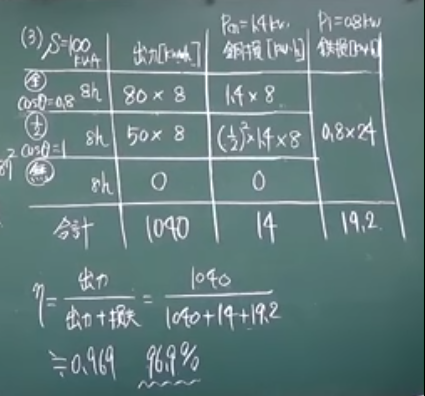 (3) S=100kVA 出力[kW·h] Pcn=1.4kW 銅損[kW·h] Pi=0.8kW 鉄損[kW·h]
全 cosθ=0.8 8h 80×8 1.4×8 0.8×24
1/2 cosθ=1 8h 50×8 (1/2)²×1.4×8
無 8h 0 0
合計 1040 14 19.2
η = 出力/出力+損失 = 1040/1040+14+19.2
≒0.969 96.9%